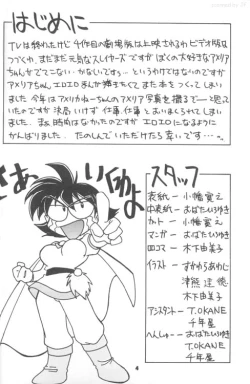 はじめに
TVは終わったけど 千作目の劇場版は上映されるわ ビデオ版は
つづくわ、まだまだ 元気なスレイヤーズですが ぼくの大好きなアメリア
ちゃんがでてこない…かないですぅ… というわけではないのですが
アメリアちゃん エロエロさんが描きたくて また本を つくってしまい
ました 今年は アメリカゆーちゃんのアメリア写真を撮るで〜と思って
いたのですが
まぁ、時間はなかったのですが エロエロになるように
がんばりました たのしんでいただけたら 幸いです…
さぁ
いくわよ
スタッフ
表紙 ー 小幡寛之
中表紙 ー おばたひろゆき
カット ー 小幡寛之
マンガ ー おばたひろゆき
四コマ ー 木下由美子
イラスト ー ずからわあけじ
津熊達徳
木下由美子
アシスタント ー T.OKANE
千年屋
へんしゅー ー おばたひろゆき
T.OKANE
千年屋
4